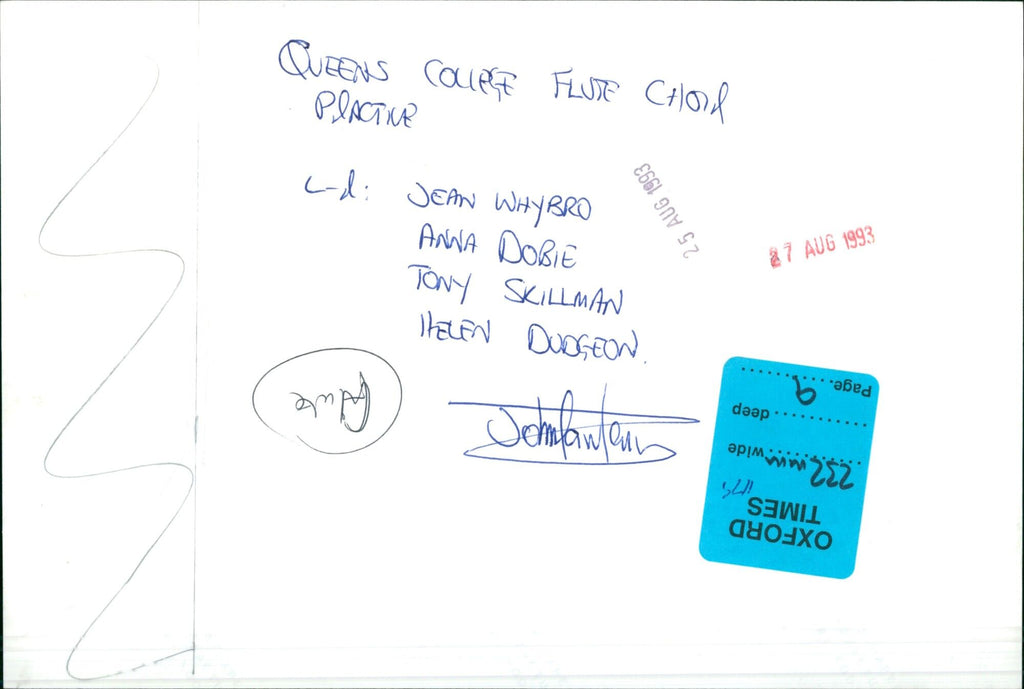 QUEENS COLLEGE FLUTE CHOIR
PRACTICE
L-R:
JEAN WHYBRO
ANNA DOBIE
TONY SKILLMAN
HELEN DUDGEON.
25 AUG 1993
27 AUG 1993
Flute
OXFORD
TIMES
232mm wide
deep
Page. 9